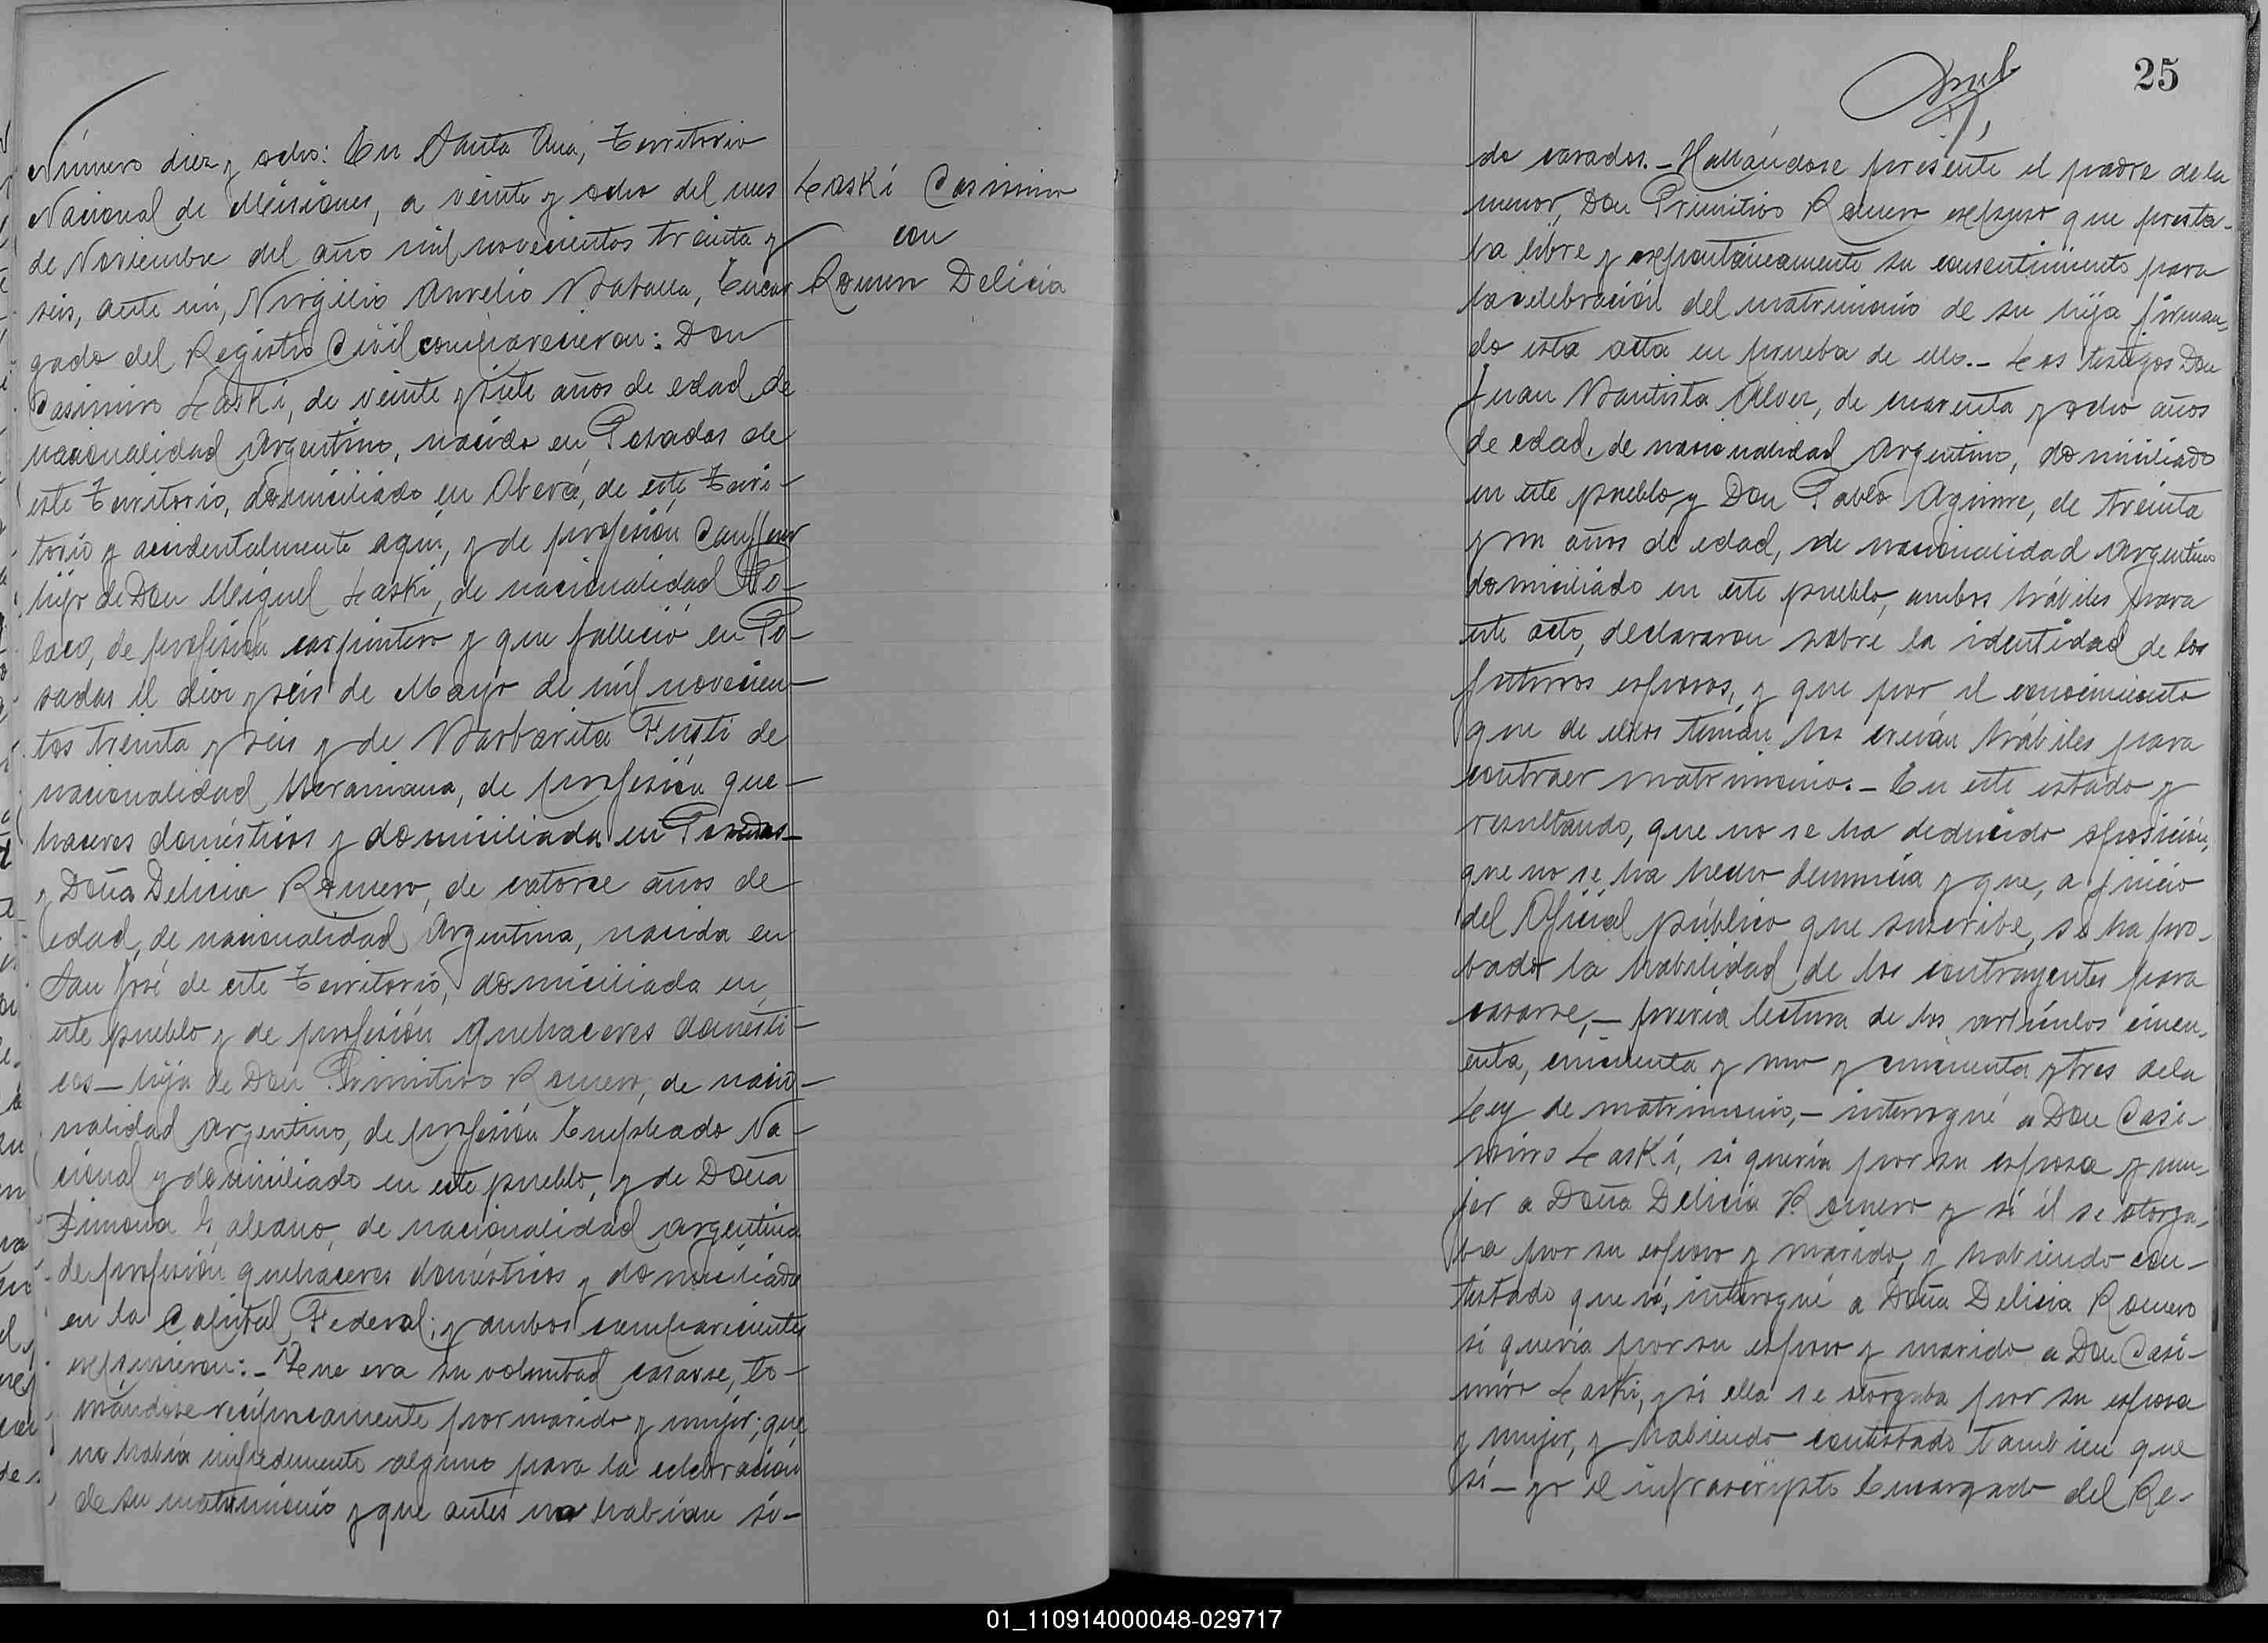 Número diez y ocho: En Santa Ana, Territorio
Nacional de Misiones, a veinte y ocho del mes
de Noviembre del año mil novecientos treinta y
seis, ante mí, Virgilio Aurelio Encar
gado del Registro Civil comparecieron: Don
Casimiro Laski, de veinte y siete años de edad, de
nacionalidad Argentino, nacido en Posadas de
este Territorio, domiciliado en Oberá, de este Terri-
torio y accidentalmente aquí, y de profesión Cauffeur
hijo de Don Miguel Laski, de nacionalidad Po-
laco, de profesión carpintero y que falleció en Po-
sadas il diez y seis de Mayo de mil novecien-
tos treinta y seis y de Barbarita Fusti de
nacionalidad Ucraniana, de profesión que-
haceres domésticos y domiciliada en Posadas-
y Doña Delicia Romero, de catorce años de
edad, de nacionalidad Argentina, nacida en
San José de este Territorio, domiciliada en
este pueblo y de profesión Quehaceres domésti-
cos- hija de Don Primitivo Romero, de nacio-
nalidad Argentino, de profesión Empleado Na-
cional y domiciliado en este pueblo, y de Doña
Simona Galeano, de nacionalidad Argentina
de profesión quehaceres domésticos y domiciliada
en la Capital Federal; y ambos comparecientes
expusieron:- Que era su voluntad casarse, to-
mándose recíprocamente por marido y mujer; que
no había impedimento alguno para la celebración
de su matrimonio y que antes no habían si-
Laski Casimiro
con
Romero Delicia
25
do casados.- Hallándose presente el padre de la
menor, Don Primitivo Romero expuso que presta-
ba libre y expontáneamente su consentimiento para
la celebración del matrimonio de su hija firman-
do esta acta en prueba de ello.- Los testigos Don
Juan Bautista Alvez, de cuarenta y ocho años
de edad, de nacionalidad Argentino, domiciliado
en este pueblo, y Don Pablo Aguirre, de treinta
y un años de edad, de nacionalidad Argentino
domiciliado en este pueblo, ambos hábiles para
este acto, declararon sobre la identidad de los
futuros esposos, y que por el conocimiento
que de ellos tenían los creían hábiles para
contraer matrimonio.- En este estado y
resultando, que no se ha deducido oposición,
que no se ha hecho denuncia y que, a juicio
del Oficial público que suscribe, se ha pro-
bado la habilidad de los contrayentes para
casarse,- previa lectura de los artículos cincu-
enta, cincuenta y uno y cincuenta y tres de la
Ley de matrimonio,- interrogué a Don Casi-
miro Laski, si quería por su esposa y mu-
jer a Doña Delicia Romero y si él se otorga-
ba por su esposo y marido, y habiendo con-
testado que sí, interogué a Doña Delicia Romero
si quería por su esposo y marido a Don Casi-
miro Laski, y si ella se otorgaba por su esposa
y mujer, y habiendo contestado tambien que
sí- yo el infrascripto Encargado del Re-
01_110914000048-029717